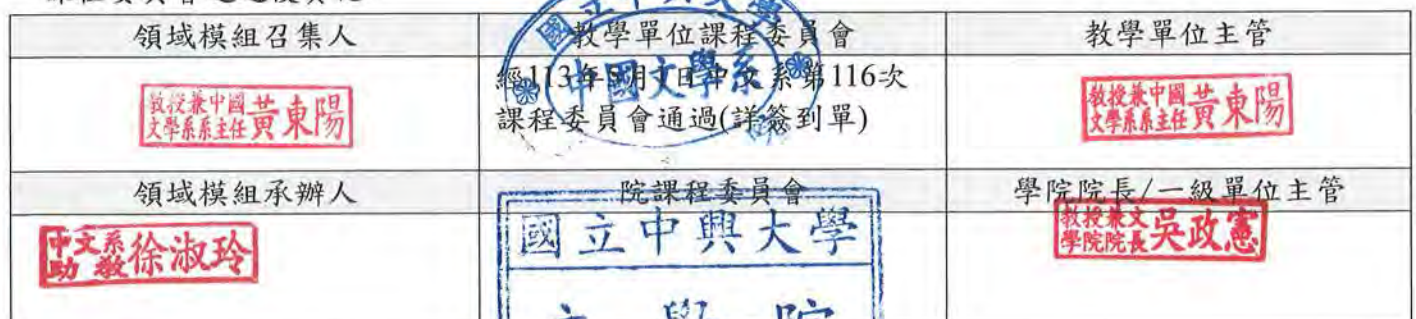 領域模組召集人
教學單位課程委員會
教學單位主管
教授兼中國
文學系系主任
黃東陽
國立中興大學
中國文學系
經113年5月1日中文系第116次
課程委員會通過(詳簽到單)
教授兼中國
文學系系主任
黃東陽
領域模組承辦人
院課程委員會
學院院長/一級單位主管
中文系
助教
徐淑玲
國立中興大學
文學院
教授兼文
學院院長
吳政憲